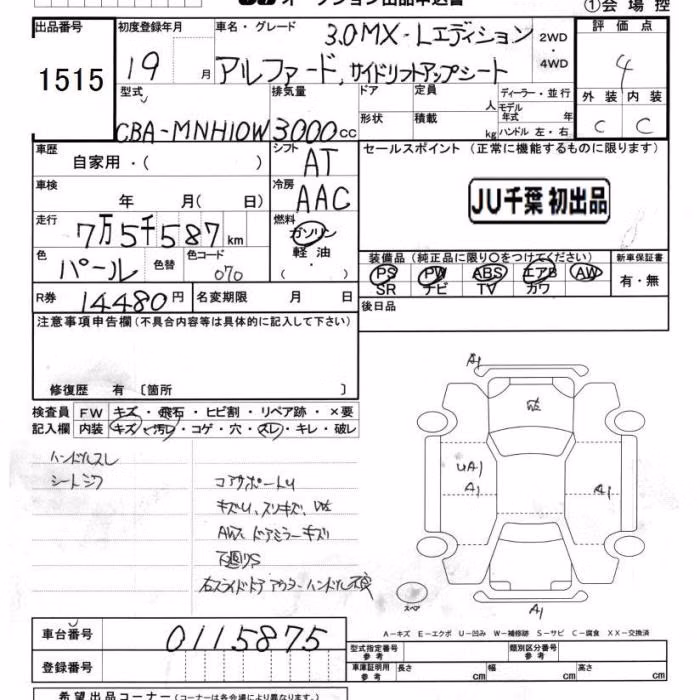 オークション出品申込書
①会場控
出品番号
1515
初度登録年月
19 月
車名・グレード
3.0MX-Lエディション
アルファード,サイドリフトアップシート
2WD
・
4WD
評価点
4
外装 内装
C C
型式
CBA-MNH10W
排気量
3000cc
ドア
形状
定員
人
積載
kg
ディーラー・並行
モデル
年式 年
ハンドル 左・右
車歴
自家用・( )
シフト
AT
セールスポイント(正常に機能するものに限ります)
JU千葉 初出品
車検
年 月( 日)
冷房
AAC
走行
7万5千587km
燃料
ガソリン
軽油
・( )
色
パール
色替
色コード
070
装備品(純正品に限り○をつけてください)
PS PW ABS エアB AW
SR ナビ TV カワ
新車保証書
有・無
R券
14480円
名変期限 月 日
後日品
注意事項申告欄(不具合内容等は具体的に記入して下さい)
修復歴 有〔箇所 〕
検査員 FW キズ・飛石・ヒビ割・リペア跡・×要
記入欄 内装 キズ・汚レ・コゲ・穴・スレ・キレ・破レ
ハンドルスレ
シートシワ
コアサポートU
キズU、スリキズ、
AW、ドアミラーキズ
下廻りS
右スライドドアアウターハンドル不良
A1
UA1
A1
A1
A1
スペア
A-キズ E-エクボ U-凹み W-補修跡 S-サビ C-腐食 XX-交換済
車台番号
0115875
登録番号
型式指定番号
参考
類別区分番号
参考
車庫証明用
参考
長さ cm
幅 cm
高さ cm
希望出品コーナー(コーナーは各会場により異なります)